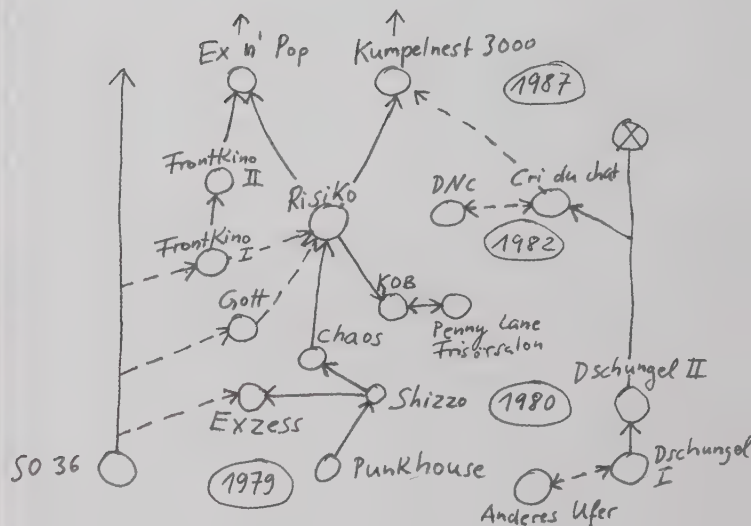 Ex n' Pop
Kumpelnest 3000
1987
FrontKino
II
Risiko
DNC
Cri du chat
1982
FrontKino
I
Gott
KOB
Penny Lane
Frisörsalon
Chaos
Dschungel II
Shizzo
1980
Exzess
SO 36
1979
Punkhouse
Dschungel
I
Anderes Ufer